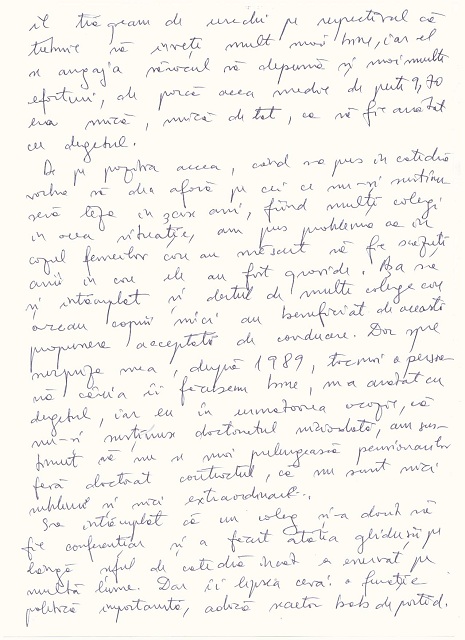 îl trăgeam de urechi pe respectivul că
trebuie să învețe mult mai bine, iar el
se angaja săracul să depună și mai multe
eforturi, de parcă acea medie de peste 9,70
era mică, mică de tot, ca să fie arătat
cu degetul.
De pe poziția aceea, când s-a pus în catedră
vorba să dea afară pe cei ce nu-și susțin
seră teza în zece ani, fiind mulți colegi
în acea situație, am pus problema ca în
cazul femeilor care au născut să fie scăzuți
anii în care ele au fost gravide. Așa s-a
și întâmplat și destul de multe colege care
aveau copii mici au beneficiat de această
propunere acceptată de conducere. Dar spre
surpriza mea, după 1989, tocmai o persoa
nă căreia îi făcusem bine, m-a arătat cu
degetul, iar eu în următoarea ocazie, că
nu-și susținuse doctoratul niciodată, am sus-
ținut să nu se mai prelungească pensionarilor
fără doctorat contractul, că nu sunt nici
sublimi și nici extraordinari.
S-a întâmplat că un coleg și-a dorit să
fie conferențiar și a făcut atâta gălăgie pe
lângă șeful de catedră încât a enervat pe
multă lume. Dar îi lipsea ceva: o funcție
politică importantă, adică secretar bob de partid.